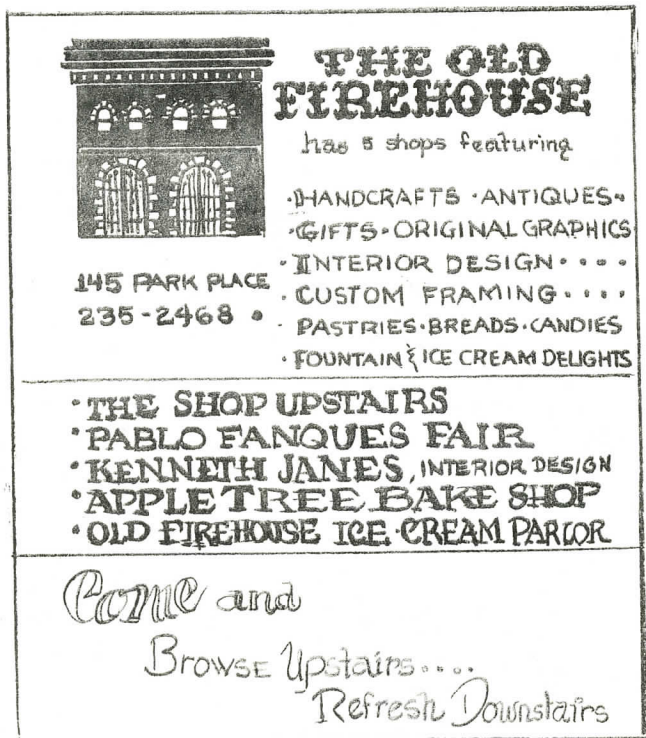 THE OLD
FIREHOUSE
has 5 shops featuring
·HANDCRAFTS ·ANTIQUES·
·GIFTS·ORIGINAL GRAPHICS
·INTERIOR DESIGN····
·CUSTOM FRAMING····
·PASTRIES·BREADS·CANDIES
·FOUNTAIN & ICE CREAM DELIGHTS
145 PARK PLACE
235-2468 •
·THE SHOP UPSTAIRS
·PABLO FANQUES FAIR
·KENNETH JANES, INTERIOR DESIGN
·APPLE TREE BAKE SHOP
·OLD FIREHOUSE ICE CREAM PARLOR
Come and
Browse Upstairs....
Refresh Downstairs